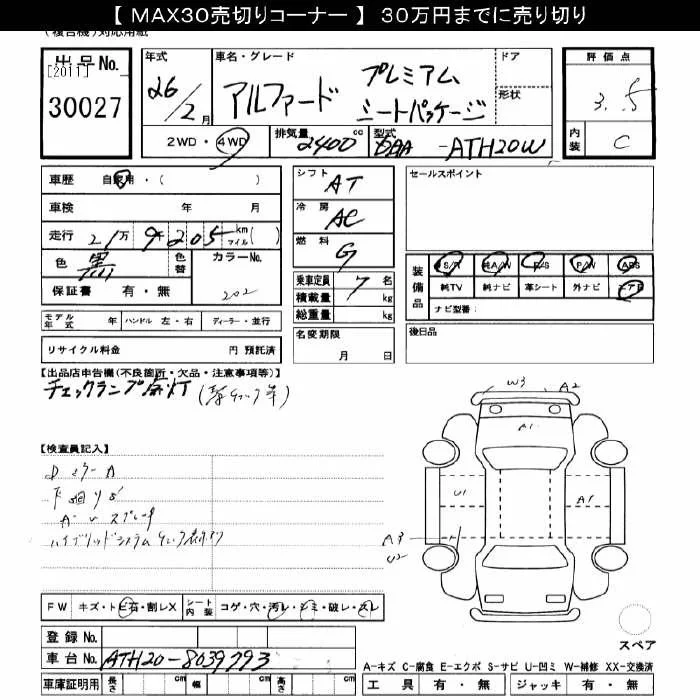 【 MAX30売切りコーナー 】 30万円までに売り切り
(複合機)対応用紙
出品No.
[2011]
30027
年式
26/2月
車名・グレード
アルファード プレミアム
シートパッケージ
ドア
形状
評価点
3.5
内装 C
2WD・4WD
排気量 2400 cc
型式 DAA-ATH20W
車歴 自家用・( )
車検 年 月
走行 21万9205 km マイル( )
色 黒 色替 カラーNo. 202
保証書 有・無
モデル年式 年 ハンドル 左・右 ディーラー・並行
リサイクル料金 円 預託済
シフト AT
冷房 AC
燃料 G
乗車定員 7 名
積載量 kg
総重量 kg
名変期限
月 日
セールスポイント
装備品
S/R 純A/W P/S P/W ABS
純TV 純ナビ 革シート 外ナビ エアB
ナビ型番:
後日品
【出品店申告機(不良箇所・欠品・注意事項等)】
チェックランプ点灯
【検査員記入】
DミラーA
下廻りサビ
ハイブリッドシステムチェック表示
W3 A2
A1
U1 A1
A3
U2
FW キズ・トビ石・割レX シート内装 コゲ・穴・汚レ・シミ・破レ・スレ
登録No.
車台No. ATH20-8039793
車庫証明用 長さ cm 幅 cm 高さ cm
スペア
A-キズ C-腐食 E-エクボ S-サビ U-凹ミ W-補修 XX-交換済
工具 有・無 ジャッキ 有・無